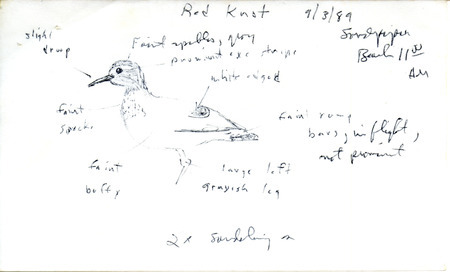 Red Knot 9/3/89
Sandpiper
Beach 11 00
AM
slight
droop
Faint speckles, gray
prominent eye stripe
white edged
faint
specks
Faint rump
bars, in flight,
not prominent
faint
buffy
large left
grayish leg
2x Sanderling